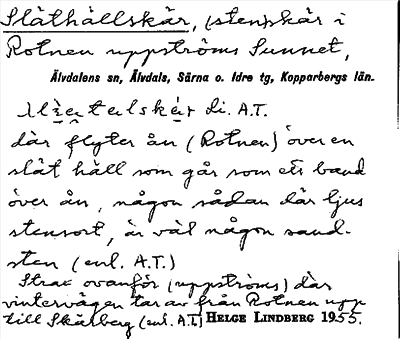 Släthällskär, (sten)skär i
Rotnen uppströms Sunnet,
Älvdalens sn, Älvdals, Särna o. Idre tg, Kopparbergs län.
di. A.T.
där flyter ån (Rotnen) över en
slät häll som går som ett band
över ån, någon sådan där ljus
stensort, är väl någon sand-
sten (enl. A.T.)
Strax ovanför (uppströms) där
vintervägen tar av från Rotnen upp
till Skärberg (enl. A.T.) HELGE LINDBERG 1955.